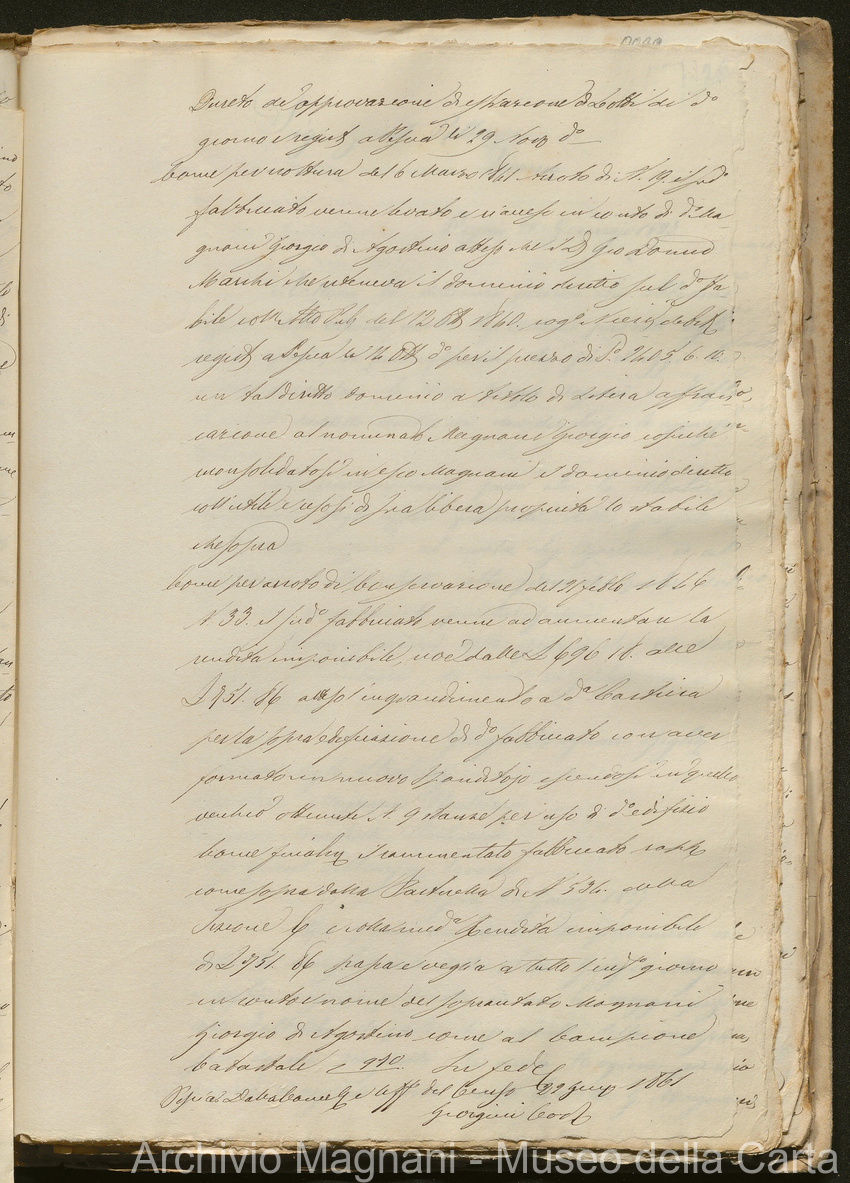 Decreto di approvazione di estrazione di Lotti di d.o
giorno e regist. a Pescia li 29 Nov. d.o
Come per voltura del 6 Marzo 1841 Arroto di N. 19. il sud.o
fabbricato venne levato e viavese in conto di d.o Ma-
gnani Giorgio di Agostino attesoche il Sig. Gio Domco
Marchi che riteneva il dominio diretto sul d.o Sta-
bile coll'Atto Pub. del 12 Ott. 1840. rog.
regist. a Pescia li 14 Ott. d.o per il prezzo di 2405. 6. 10.
un tal diretto dominio a titolo di libera affran-
cazione al nominato Magnani Giorgio cosicchè
consolidatosi in esso Magnani il dominio diretto
coll'utile e resosi di sua libera proprietà lo stabile
che sopra
Come per arroto di Conservazione del 21 febb.o 1846
N. 33. il sud.o fabbricato venne ad aumentare la
rendita imponibile, cioè dalle L 696 10. alle
L 751. 86 attesol'ingrandimento a d.a Cartiera
per la sopra edificazione di d.o fabbricato con aver
formato un nuovo Spanditojo essendosi in quello
vecchio ottenute N. 9 stanze per uso di d.o edifizio
Come finalm. il rammentato fabbricato rapp.
come sopra dalla Particella di N. 534. della
Sezione C e colla med.a Rendita imponibile
di L 751. 86 passa e veglia a tutto l' giorno
in conto e nome del soprancitato Magnani
Giorgio di Agostino come al Campione
Catastale C 970. In fede
Pescia Dalla Canc. e Uff. del Censo 1861
Giorgini
Archivio Magnani - Museo della Carta